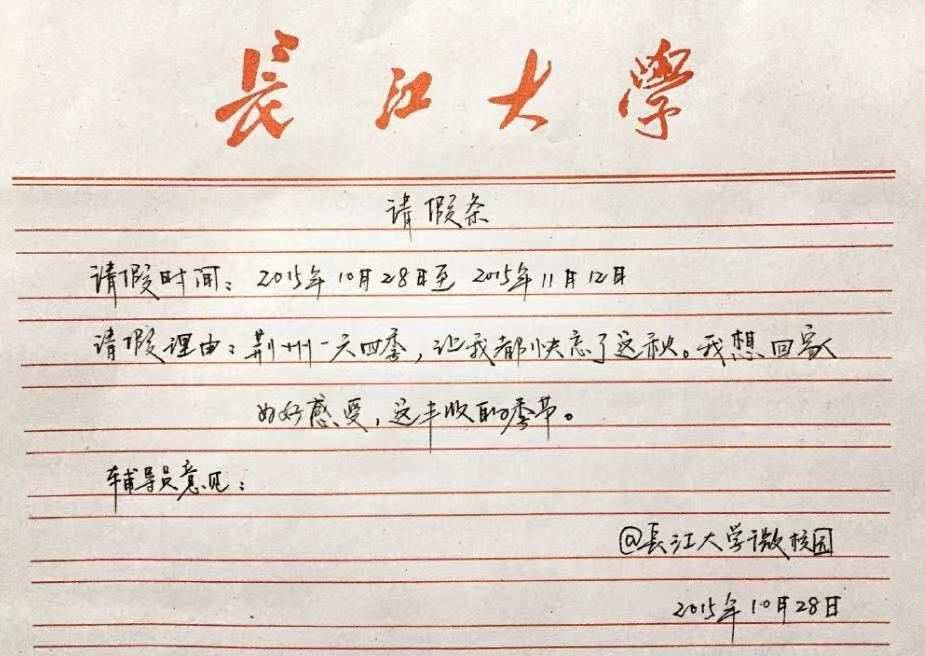 長江大學
请假条
请假时间：2015年10月28日至2015年11月12日
请假理由：荆州一天四季，让我都快忘了这秋。我想回家
好好感受，这丰收的季节。
辅导员意见：
@長江大学微校园
2015年10月28日